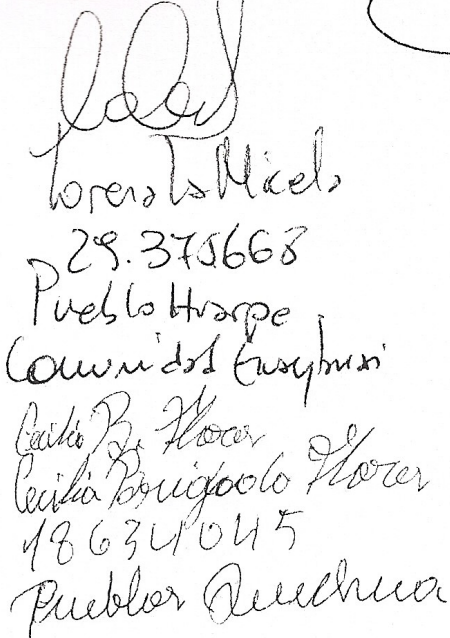 Lorena La Micela
29.375668
Pueblo Huarpe
Comunidad
Cecilia B. Flores
Cecilia Brigada Flores
18634045
Pueblos Quechua